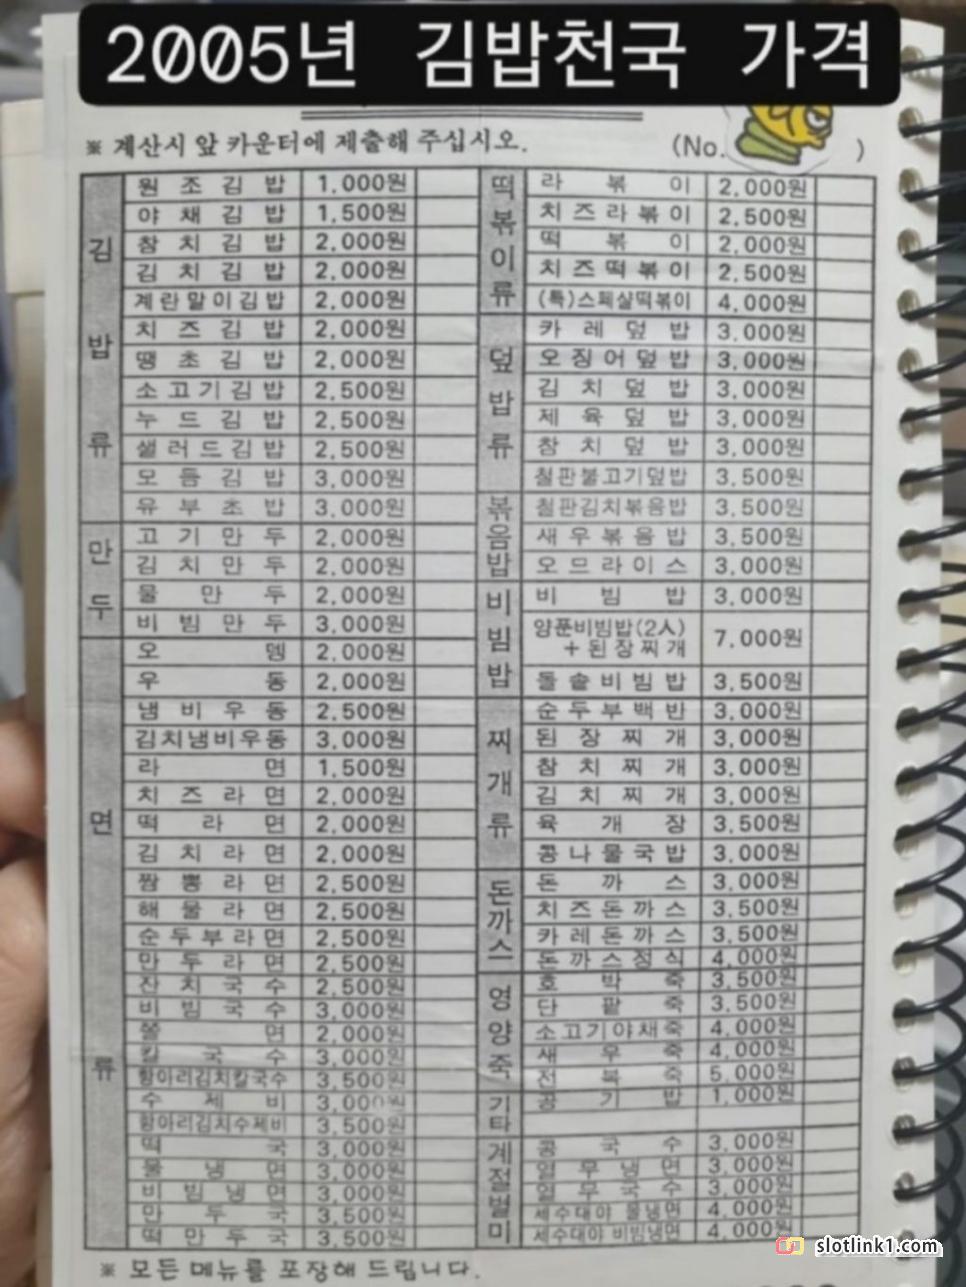 2005년 김밥천국 가격
※ 계산시 앞 카운터에 제출해 주십시오.
(No. )
김밥류
원조김밥 1,000원
야채김밥 1,500원
참치김밥 2,000원
김치김밥 2,000원
계란말이김밥 2,000원
치즈김밥 2,000원
땡초김밥 2,000원
소고기김밥 2,500원
누드김밥 2,500원
샐러드김밥 2,500원
모듬김밥 3,000원
유부초밥 3,000원
만두
고기만두 2,000원
김치만두 2,000원
물만두 2,000원
비빔만두 3,000원
면류
오뎅 2,000원
우동 2,000원
냄비우동 2,500원
김치냄비우동 3,000원
라면 1,500원
치즈라면 2,000원
떡라면 2,000원
김치라면 2,000원
짬뽕라면 2,500원
해물라면 2,500원
순두부라면 2,500원
만두라면 2,500원
잔치국수 2,500원
비빔국수 3,000원
쫄면 2,000원
칼국수 3,000원
항아리김치칼국수 3,500원
수제비 3,000원
항아리김치수제비 3,500원
떡국 3,000원
물냉면 3,000원
비빔냉면 3,000원
만두국 3,500원
떡만두국 3,500원
떡볶이류
라볶이 2,000원
치즈라볶이 2,500원
떡볶이 2,000원
치즈떡볶이 2,500원
(특)스페샬떡볶이 4,000원
덮밥류
카레덮밥 3,000원
오징어덮밥 3,000원
김치덮밥 3,000원
제육덮밥 3,000원
참치덮밥 3,000원
철판불고기덮밥 3,500원
볶음밥
철판김치볶음밥 3,500원
새우볶음밥 3,500원
오므라이스 3,000원
비빔밥
비빔밥 3,000원
양푼비빔밥(2人)
+된장찌개 7,000원
돌솥비빔밥 3,500원
찌개류
순두부백반 3,000원
된장찌개 3,000원
참치찌개 3,000원
김치찌개 3,000원
육개장 3,500원
콩나물국밥 3,000원
돈까스
돈까스 3,000원
치즈돈까스 3,500원
카레돈까스 3,500원
돈까스정식 4,000원
영양죽
호박죽 3,500원
단팥죽 3,500원
소고기야채죽 4,000원
새우죽 4,000원
전복죽 5,000원
기타
공기밥 1,000원
계절별미
콩국수 3,000원
열무냉면 3,000원
열무국수 3,000원
세수대야 물냉면 4,000원
세수대야 비빔냉면 4,000원
※ 모든 메뉴를 포장해 드립니다.
slotlink1.com